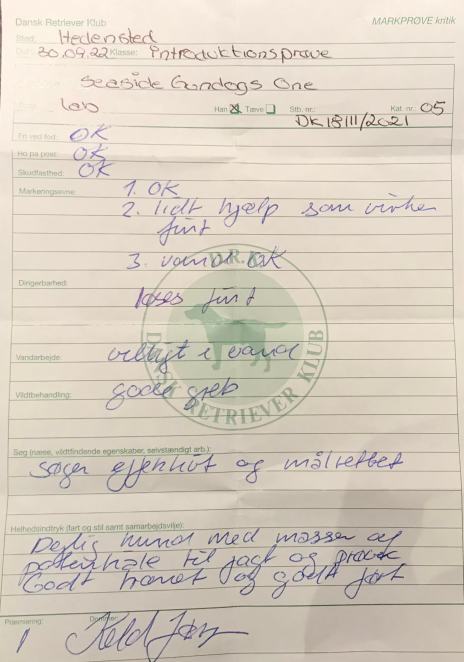 Dansk Retriever Klub
MARKPRØVE kritik
Sted: Hedensted
30.09.22 Klasse: introduktionsprøve
Seaside Gundogs One
lab Han Tæve Stb. nr.: DK18111/2021 Kat. nr.: 05
Fri ved fod: OK
Ro på post: OK
Skudfasthed: OK
Markeringsevne: 1. OK
2. lidt hjælp som virker
fint
3. vand OK
Dirigerbarhed:
løses fint
D.R.K.
DANSK RETRIEVER KLUB
Vandarbejde: villigt i vand
Vildtbehandling: gode greb
Søg (næse, vildtfindende egenskaber, selvstændigt arb.):
søger effektivt og målrettet
Helhedsindtryk (fart og stil samt samarbejdsvilje):
Dejlig hund med masser af
potentiale til jagt og prøve
Godt trænet og godt ført
Præmiering: Dommer:
1